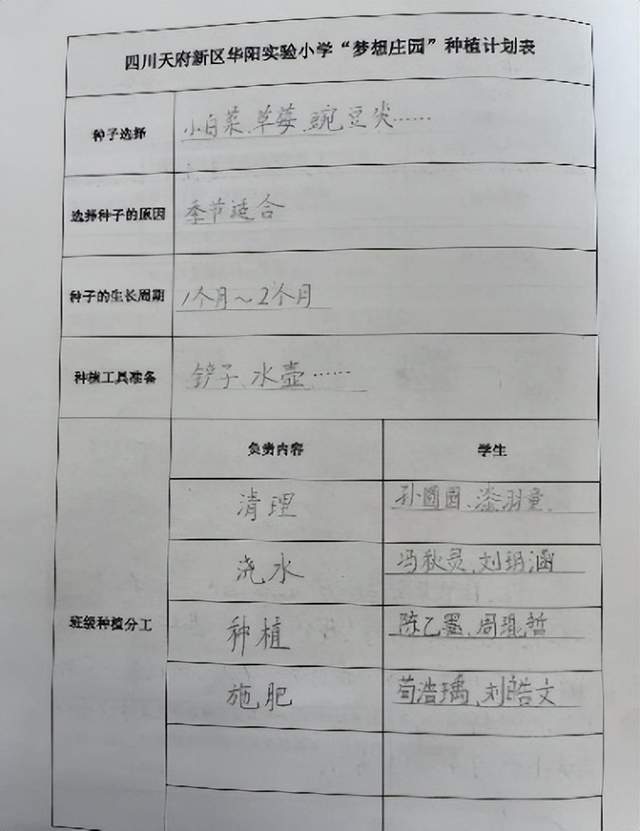 四川天府新区华阳实验小学“梦想庄园”种植计划表
种子选择 小白菜、草莓、豌豆尖……
选择种子的原因 季节适合
种子的生长周期 1个月~2个月
种植工具准备 铲子、水壶……
负责内容 学生
清理 孙圆圆、漆羽童
浇水 冯秋灵、刘玥涵
班级种植分工
种植 陈乙墨、周琨哲
施肥 苟浩瑀、刘皓文